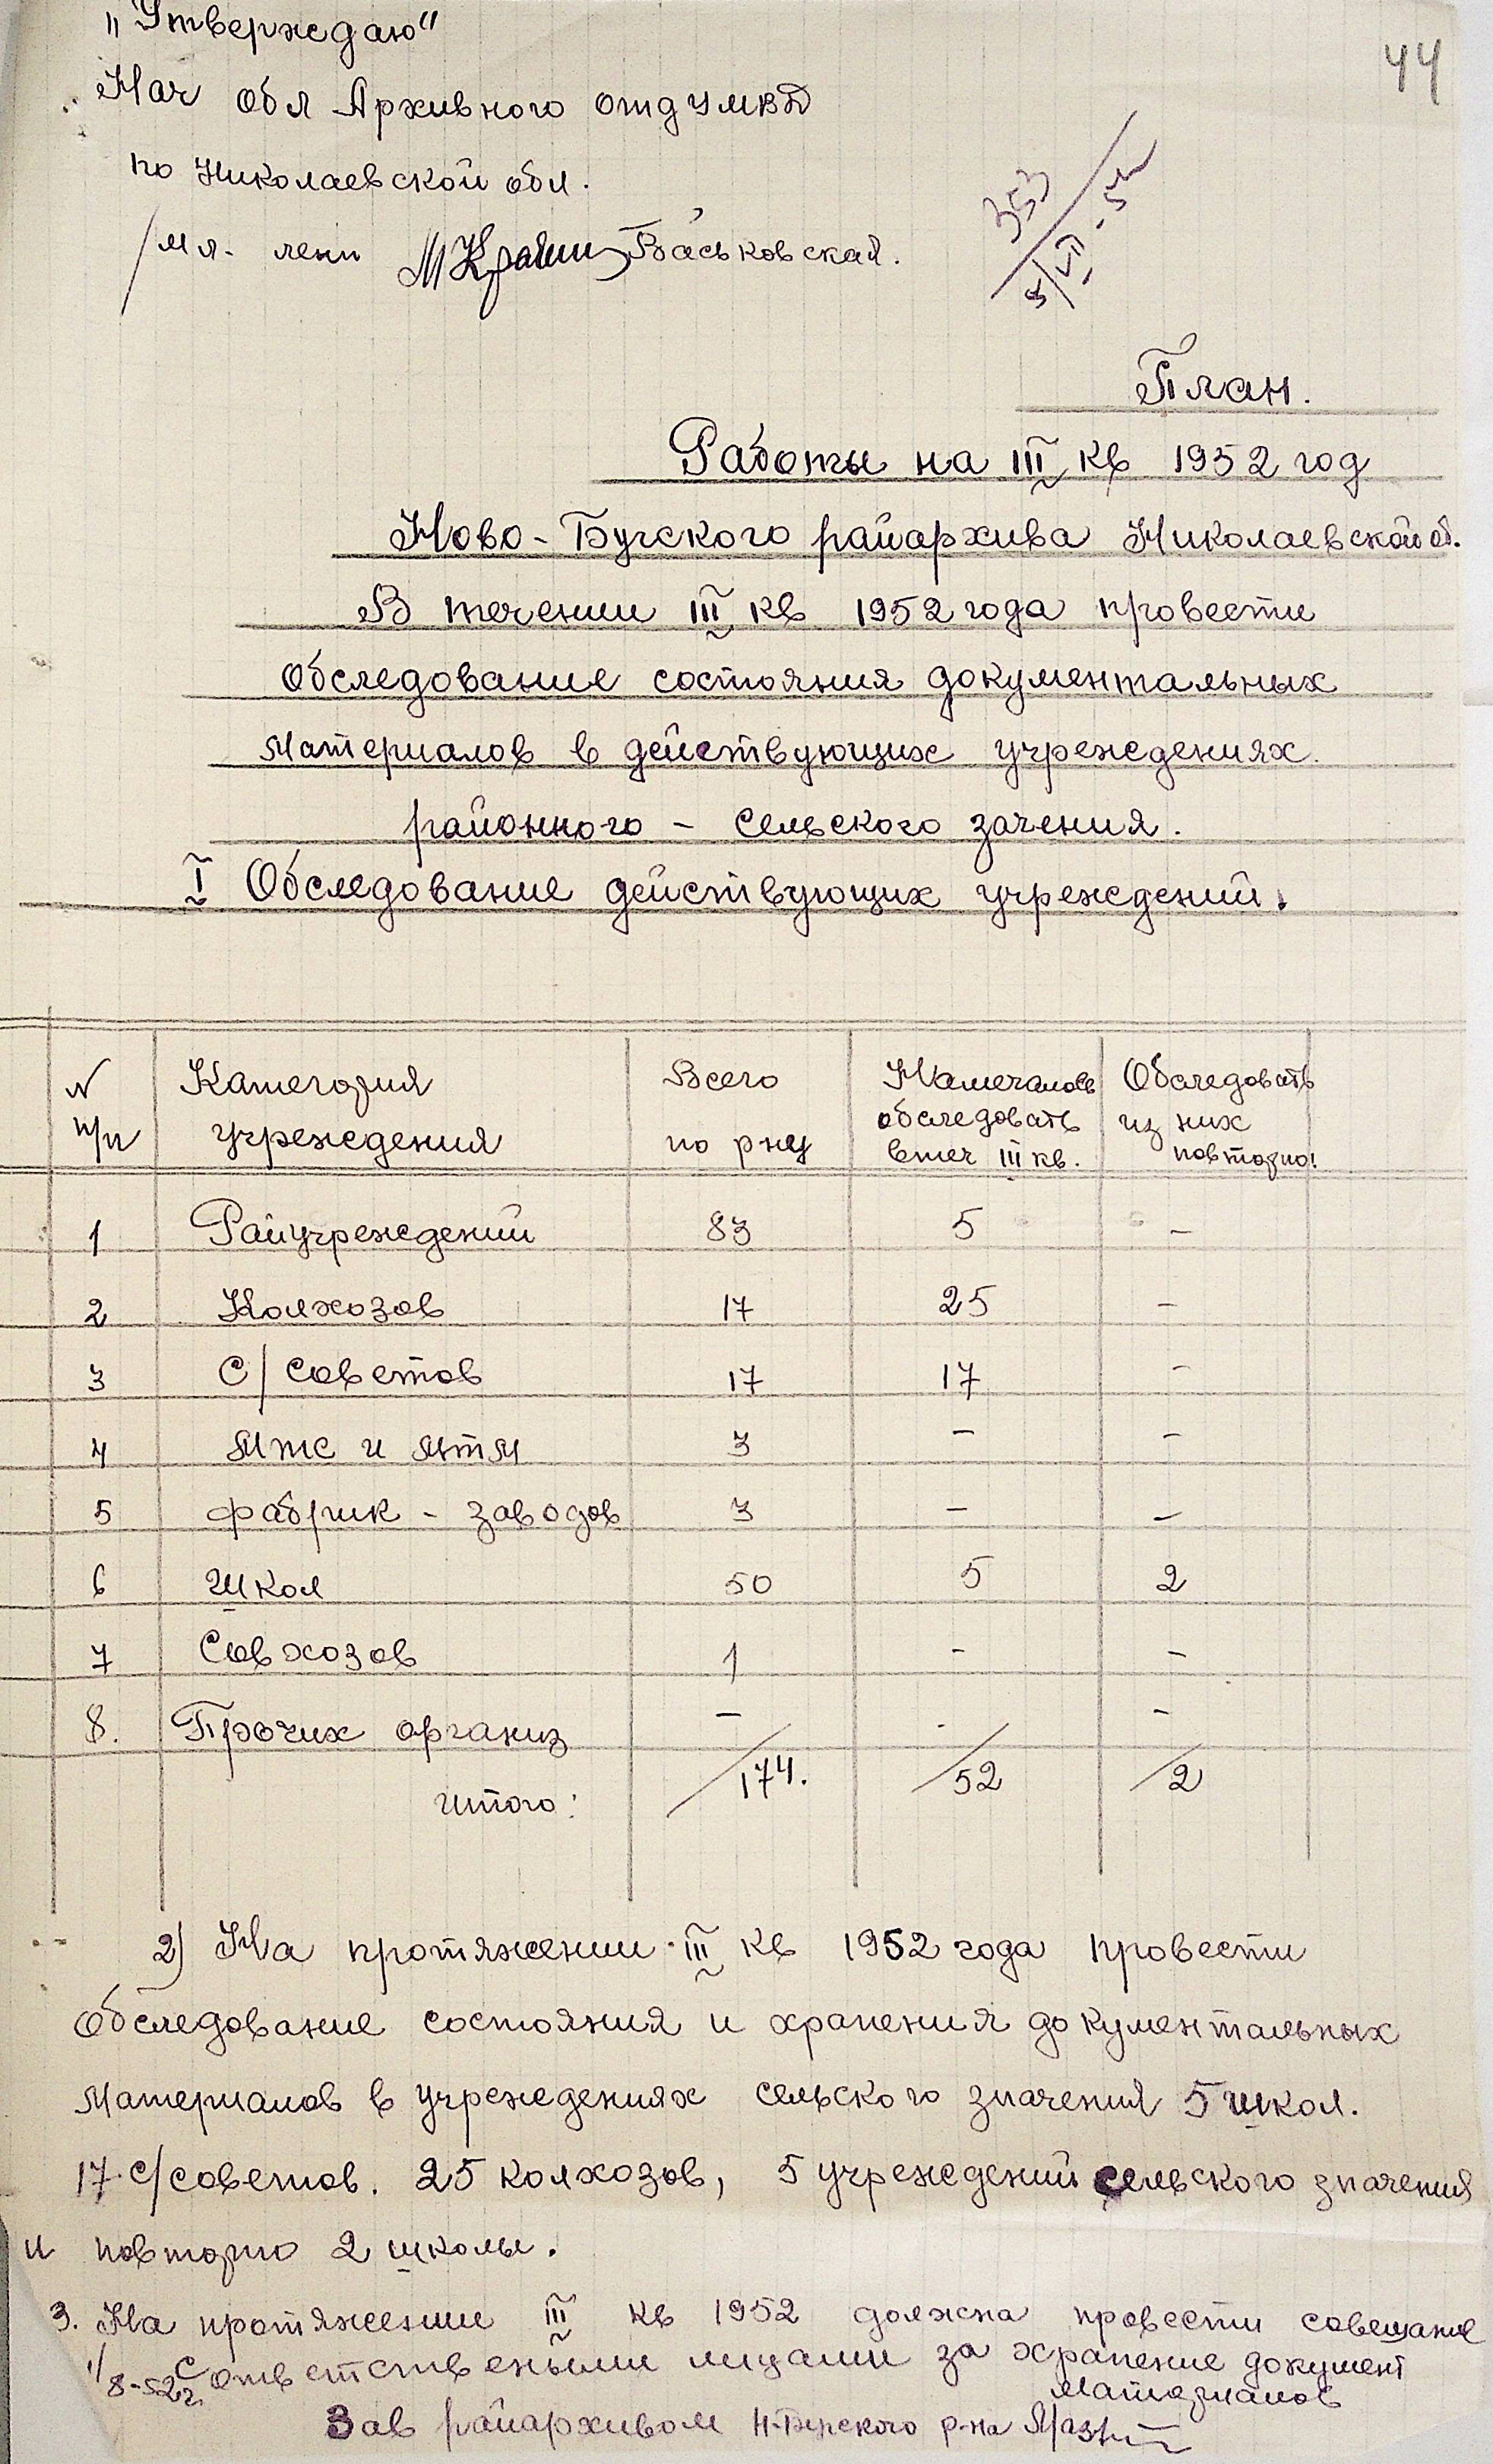 „Утверждаю"
44
Нач Обл Архивного отд УМВД
по Николаевской обл.
/мл. лент Васьковская.
353
5/VII-52
План.
Работы на III кв 1952 год
Ново-Бугского райархива Николаевской об.
В течении III кв 1952 года провести
обследование состояния документальных
материалов в действующих учреждениях
районного - сельского зачения.
I Обследование действующих учреждений.
N п/п Категория учреждения Всего по рну Намечалось обследовать втеч III кв. Обследовать из них повторно!
1 Райучреждений 83 5 -
2 Колхозов 17 25 -
3 С/Советов 17 17 -
4 Мтс и Мтм 3 - -
5 фабрик - заводов 3 - -
6 Школ 50 5 2
7 Совхозов 1 - -
8. Прочих организ - - -
итого: 174. 52 2
2) На протяжении III кв 1952 года провести
обследование состояния и хранения документальных
материалов в учреждениях сельского значения 5 школ.
17 с/советов. 25 колхозов, 5 учреждений сельского значения
и повторно 2 школы.
3. На протяжении III кв 1952 должна провести совещание
с ответствеными лицами за хранение документ
материалов
1/8-52г.
Зав райархивом Н-Бугского р-на